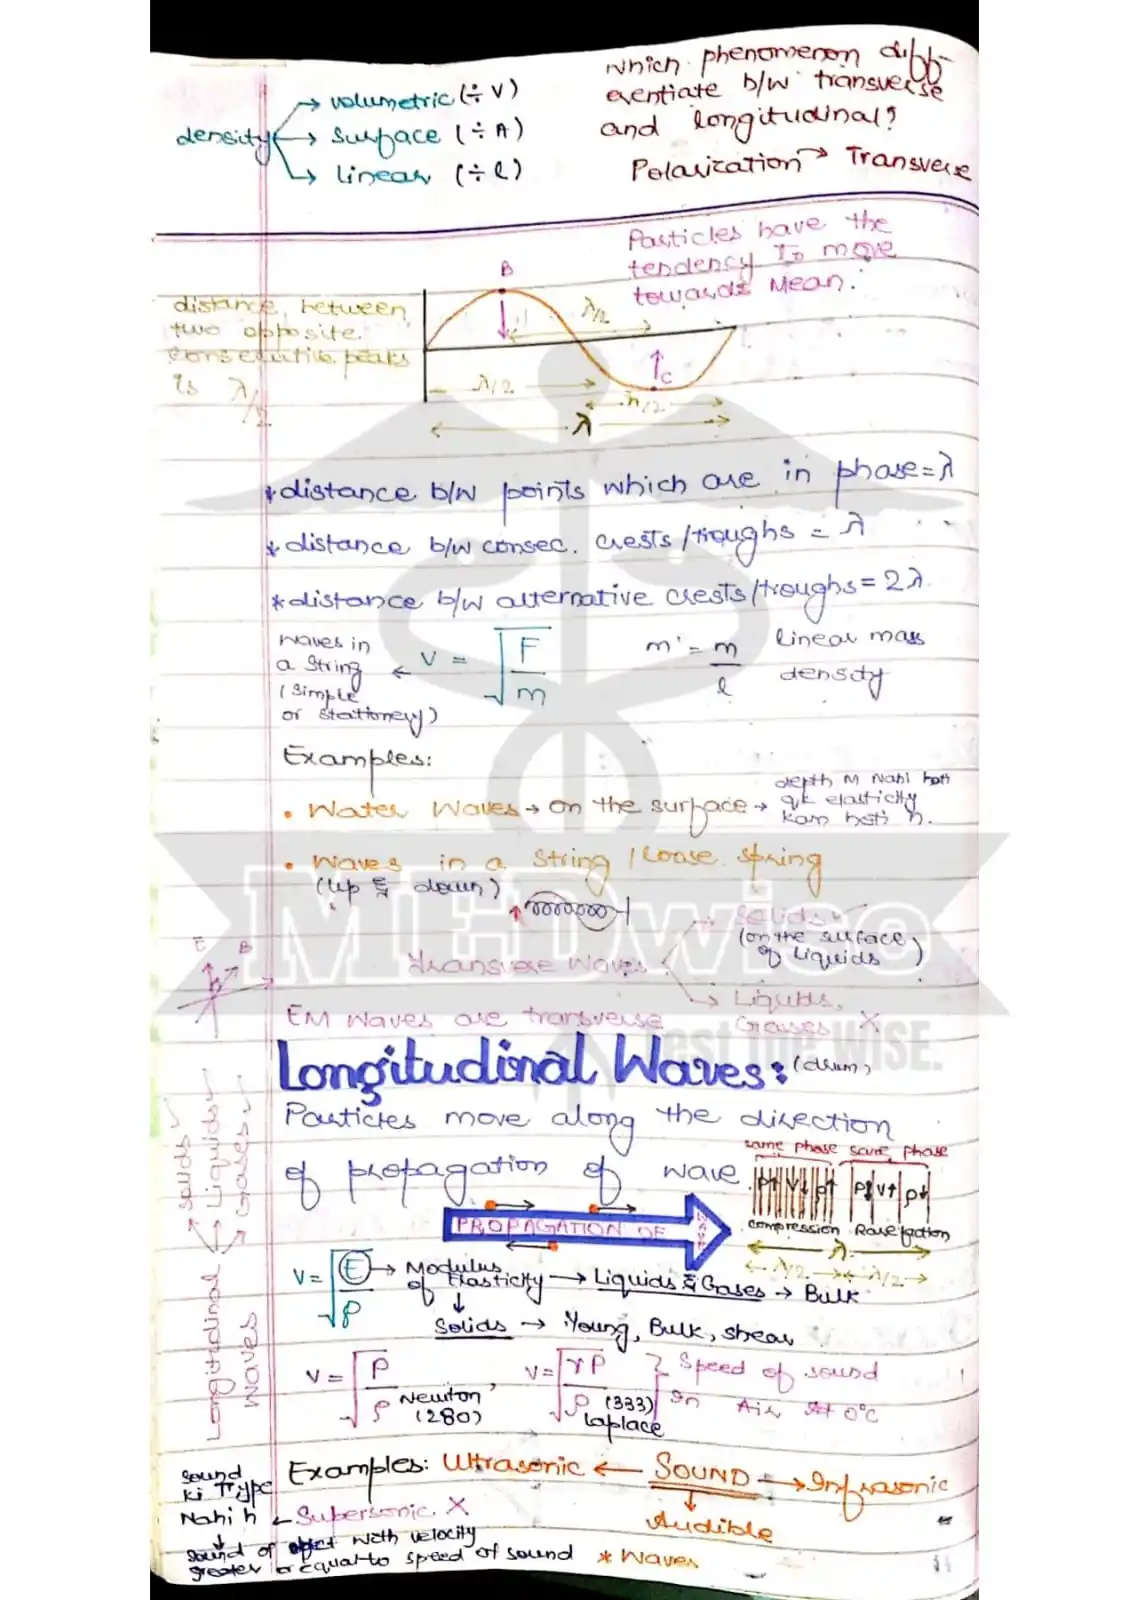 which phenomenon diff-
erentiate b/w transverse
and longitudinal?
Polarization → Transverse
density
→ volumetric (÷ V)
→ Surface (÷ A)
→ linear (÷ l)
Particles have the
tendency to move
towards Mean.
distance between
two opposite
consecutive peaks
is λ/2
B
λ/2
C
λ/2
λ/2
λ
* distance b/w points which are in phase = λ
* distance b/w consec. crests/troughs = λ
* distance b/w alternative crests/troughs = 2λ
waves in
a string
(simple
or stationery)
← v = √F/m
m' = m/l
linear mass
density
Examples:
• Water Waves → on the surface →
depth M Nahi hoti
q k elasticity
kam hoti h.
• Waves in a string / loose spring
(up & down)
Transverse waves
Solids ✓
(on the surface
of liquids)
→ Liquids,
Gases X
E B
EM waves are transverse
MEDwise
Test the WISE.
Longitudinal Waves: (drum)
Particles move along the direction
of propagation of wave.
same phase same phase
P↑ V↓ ρ↑ P↓ V↑ ρ↓
compression Rarefaction
λ
λ/2 λ/2
PROPAGATION OF WAVE
Longitudinal waves
→ solids ✓
→ Liquids ✓
→ Gases ✓
v = √E/ρ
E → Modulus of Elasticity → Liquids & Gases → Bulk
↓
Solids → Young, Bulk, shear
v = √P/ρ Newton (280),
v = √γP/ρ (333) Laplace
} Speed of sound
in Air at 0°c
Examples: Ultrasonic ← SOUND → Infrasonic
↓
Audible
Sound
ki Type
Nahi h ← Supersonic X
↓
sound of object with velocity
greater or equal to speed of sound
* Waves